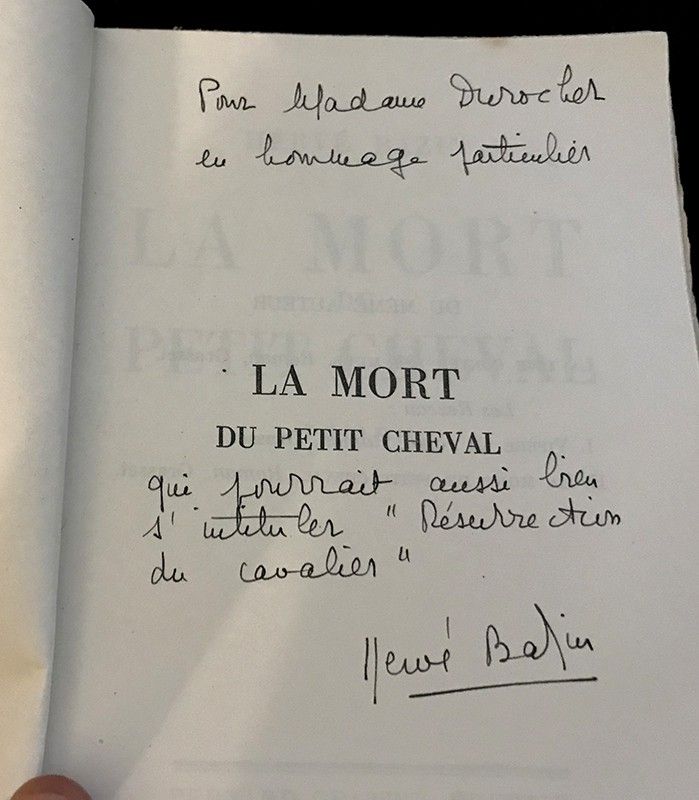 Pour Madame Durocher
en hommage particulier
LA MORT
DU PETIT CHEVAL
qui pourrait aussi bien
s'intituler "Résurrection
du cavalier"
Hervé Bazin